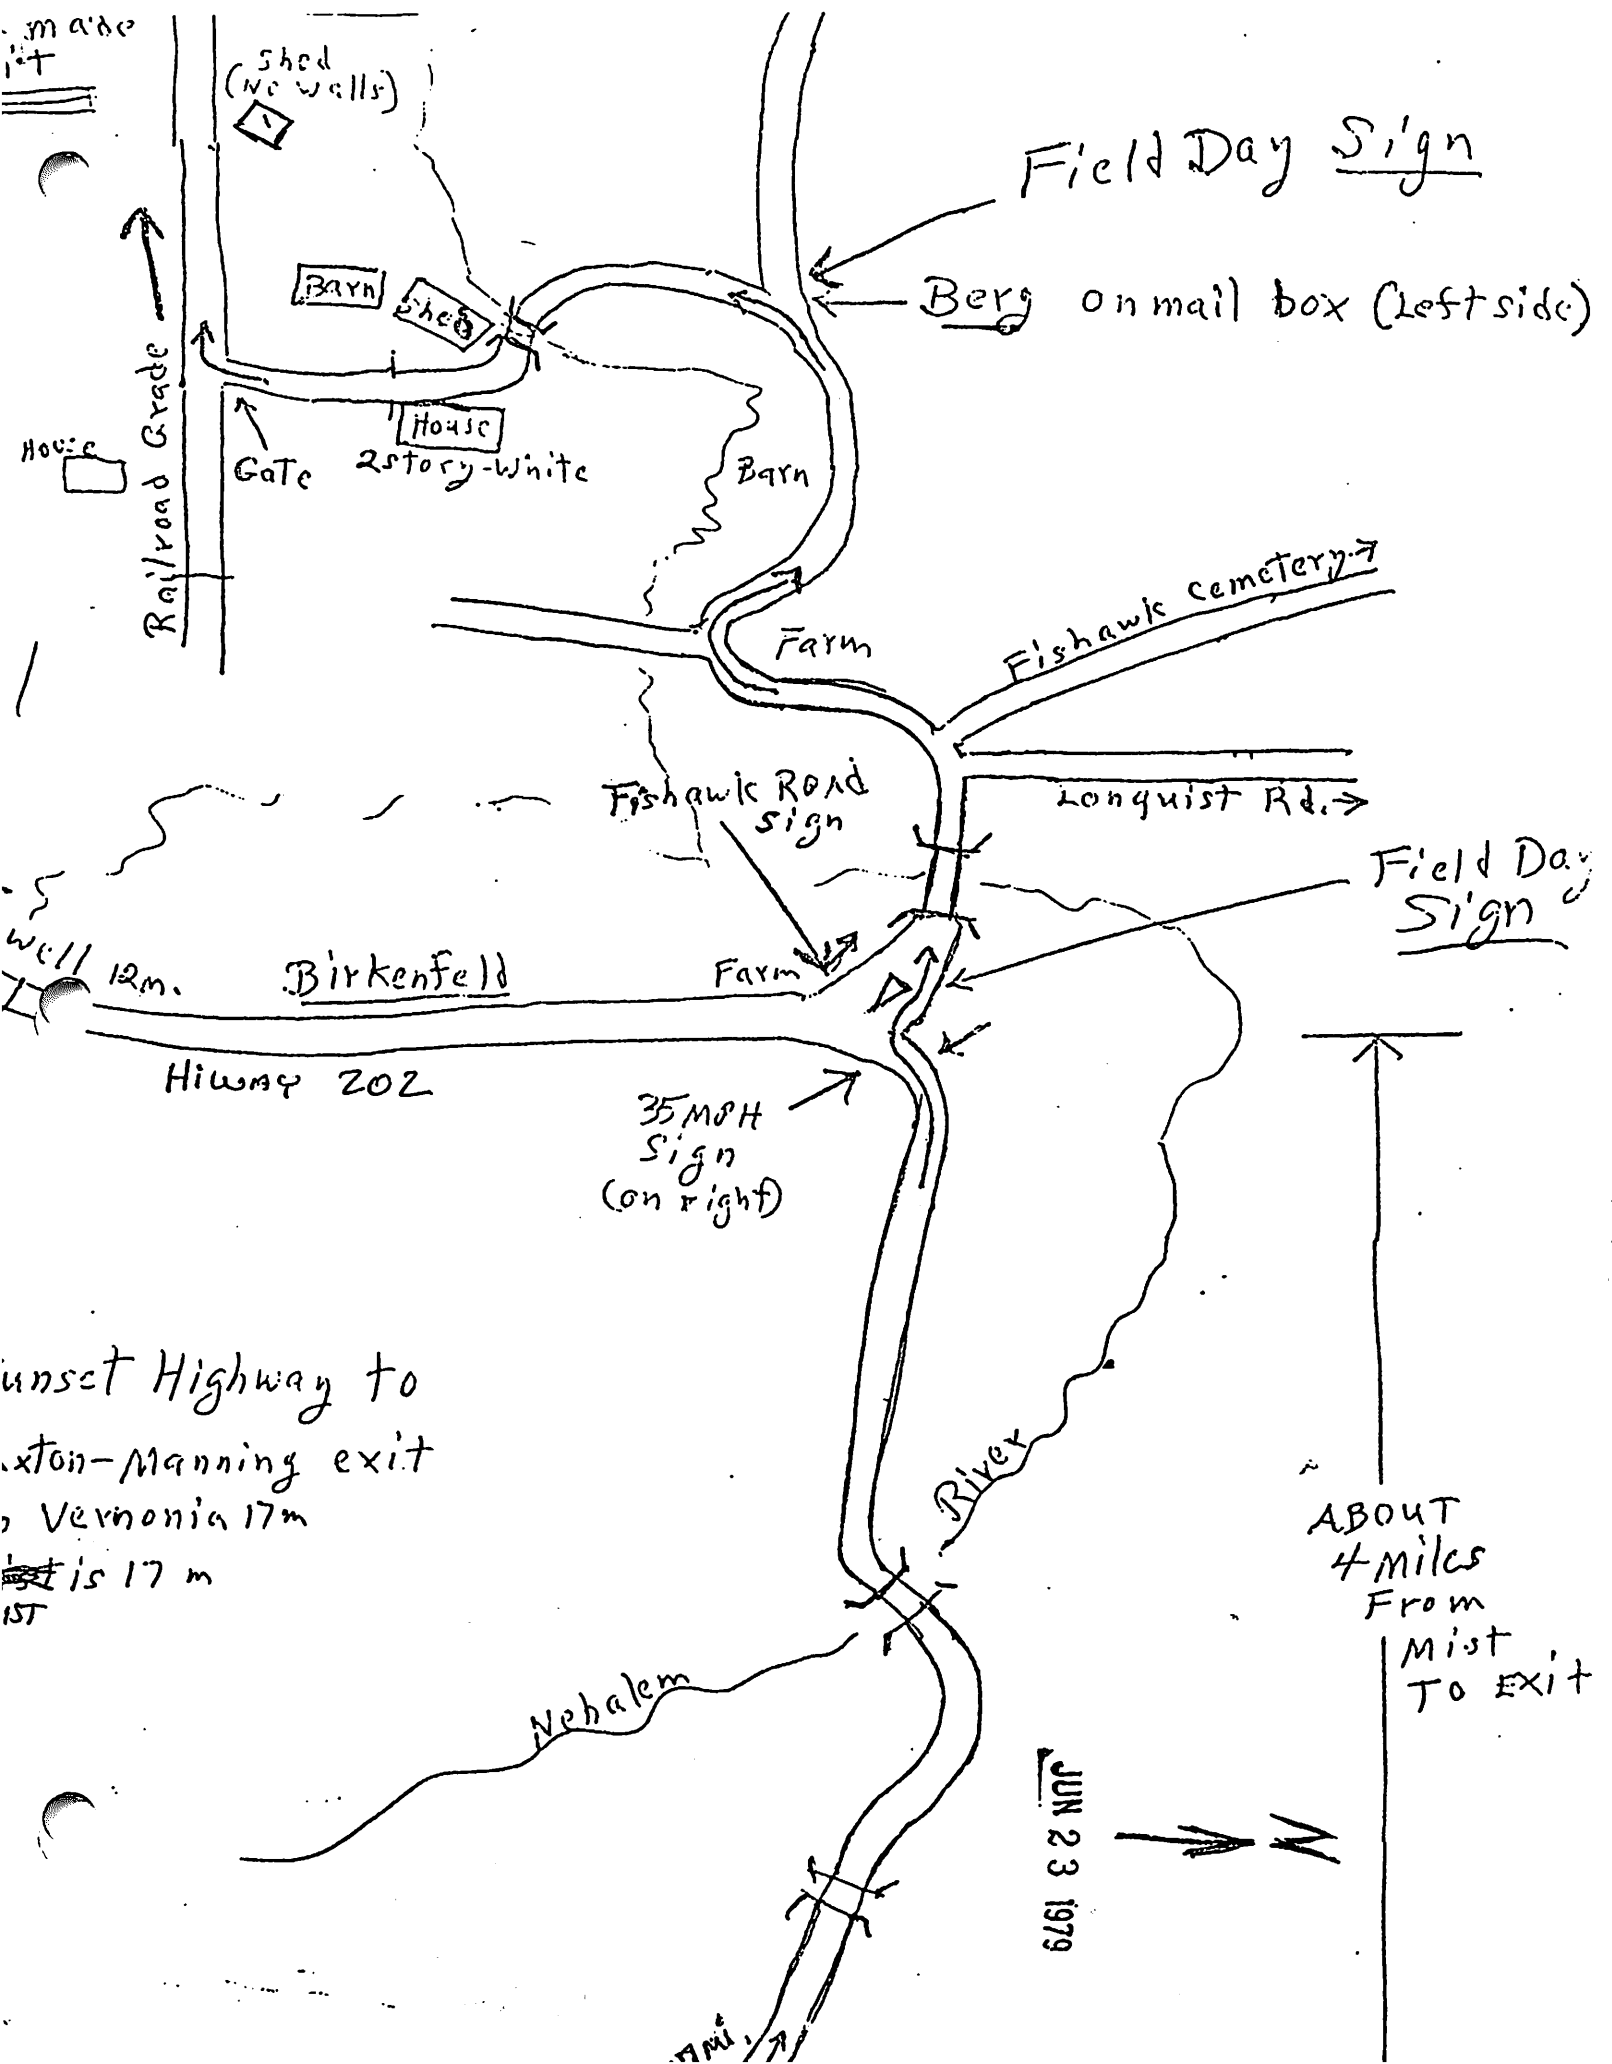 made
it
Shed
(No walls)
Field Day Sign
Barn
Shed
Berg on mail box (Left side)
House
2story-White
House
Gate
Railroad Grade
Barn
Fishawk Cemetery
Farm
Fishawk Road
Sign
Lonquist Rd.
Field Day
Sign
well
12m.
Birkenfeld
Farm
Hiway 202
35 MPH
Sign
(on right)
unset Highway to
xton-Manning exit
Vernonia 17m
is 17 m
IST
River
ABOUT
4 Miles
From
Mist
To Exit
Nehalem
JUN 23 1979
N
mi.